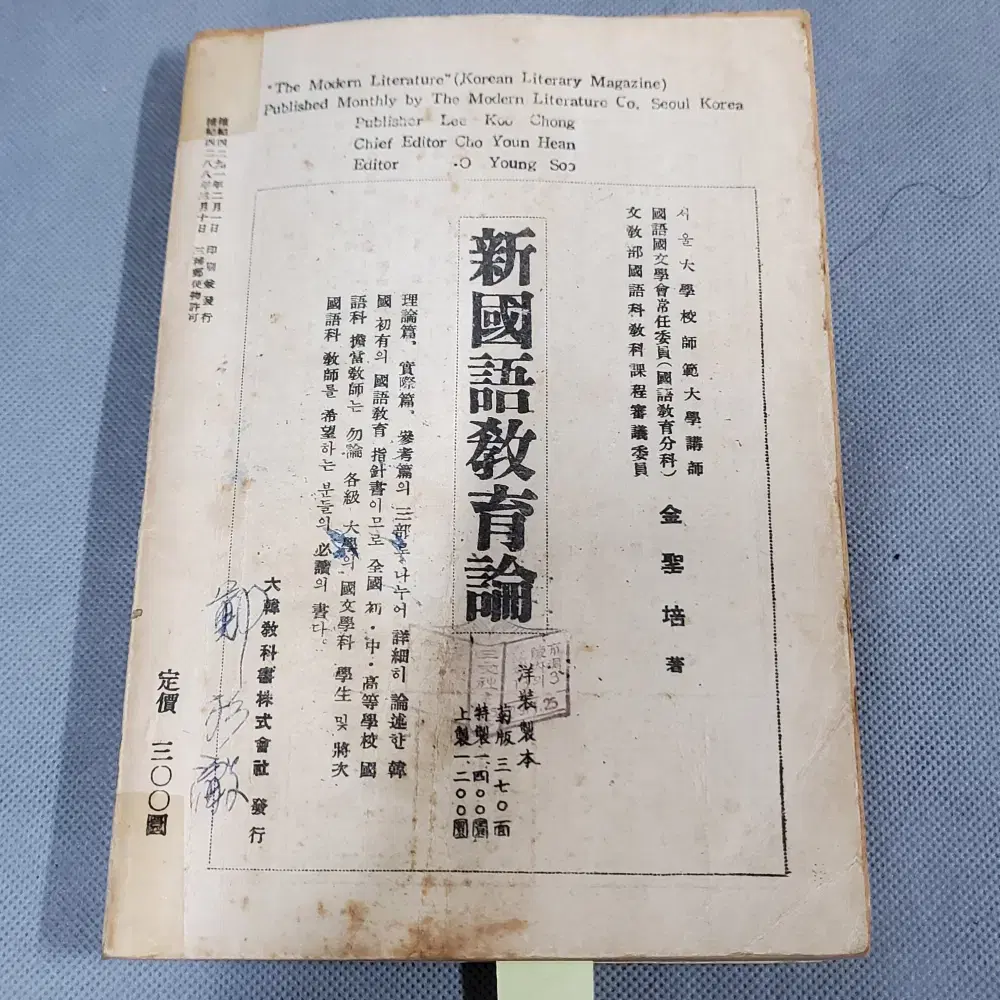 "The Modern Literature" (Korean Literary Magazine)
Published Monthly by The Modern Literature Co. Seoul Korea
Publisher Lee Koo Chong
Chief Editor Cho Youn Hean
Editor ·O Young Soo
서울大學校師範大學講師
國語國文學會常任委員(國語敎育分科)
文敎部國語科敎科課程審議委員
金聖培 著
新國語敎育論
洋裝製本
菊版 三七〇面
特製一、四〇〇圜
上製一、二〇〇圜
理論篇、實際篇、參考篇의 三部로 나누어 詳細히 論述한 韓
國 初有의 國語敎育 指針書이므로 全國 初·中·高等學校 國
語科 擔當敎師는 勿論 各級 大學의 國文學科 學生 및 將次
國語科 敎師를 希望하는 분들의 必讀의 書다。
大韓敎科書株式會社 發行
檀紀四二九一年二月一日 印刷發行
檀紀四二八八年 月十日 三種郵便物許可
定價 三〇〇圜